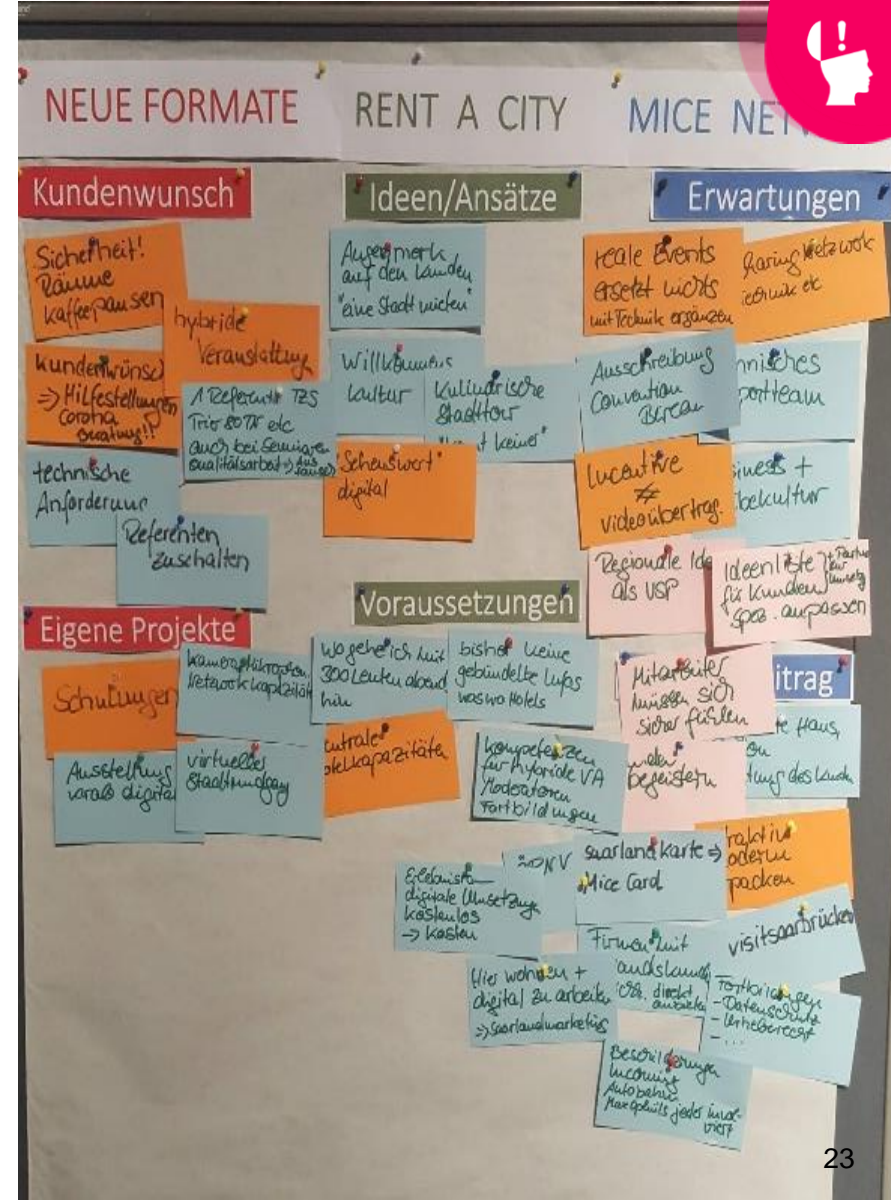 NEUE FORMATE
RENT A CITY
MICE NET
Kundenwunsch
Sicherheit!
Räume
Kaffeepausen
hybride
Veranstaltung
Kundenwünsc
=> Hilfestellungen
Corona
Beratung!!
1 Referent TZS
auch bei Seminaren
Qualitätsarbeit
technische
Anforderung
Referenten
zuschalten
Eigene Projekte
Schulungen
Netzwerkkapazität
Ausstellung
vorab digital
virtueller
Stadtrundgang
Ideen/Ansätze
Augenmerk
auf den Kunden
"eine Stadt mieten"
Willkommens
kultur
Kulinarische
Stadttour
t keiner"
"Sehenswert"
digital
Voraussetzungen
wo gehe ich mit
300 Leuten abend
hin
bisher keine
gebündelte Infos
was wo Hotels
entrale
telkapazitäten
Kompetenzen
für hybride VA
Moderatoren
Fortbildungen
digitale Umsetzung
kostenlos
-> Kosten
ÖPNV
Saarlandkarte =>
Mice Card
Hier wohnen +
digital zu arbeiten
=> Saarlandmarketing
Firmen mit
direkt
Beschilderungen
Incoming
Autobahn
jeder invol-
viert
Erwartungen
reale Events
ersetzt nichts
mit Technik ergänzen
haring Netzwok
echnik etc
Ausschreibung
Convention
Bureau
hnisches
portteam
Incentive
≠
videoübertrag.
siness +
bekultur
Regionale Ide
als USP
Ideenliste
für Kunden
spez. anpassen
itrag
Mitarbeiter
müssen sich
sicher fühlen
begeistern
te Haus,
on
tung des Kunde
raktiv
odern
packen
visitsaarbrücken
Fortbildungen
- Datenschutz
- Urheberrecht
- ...
23